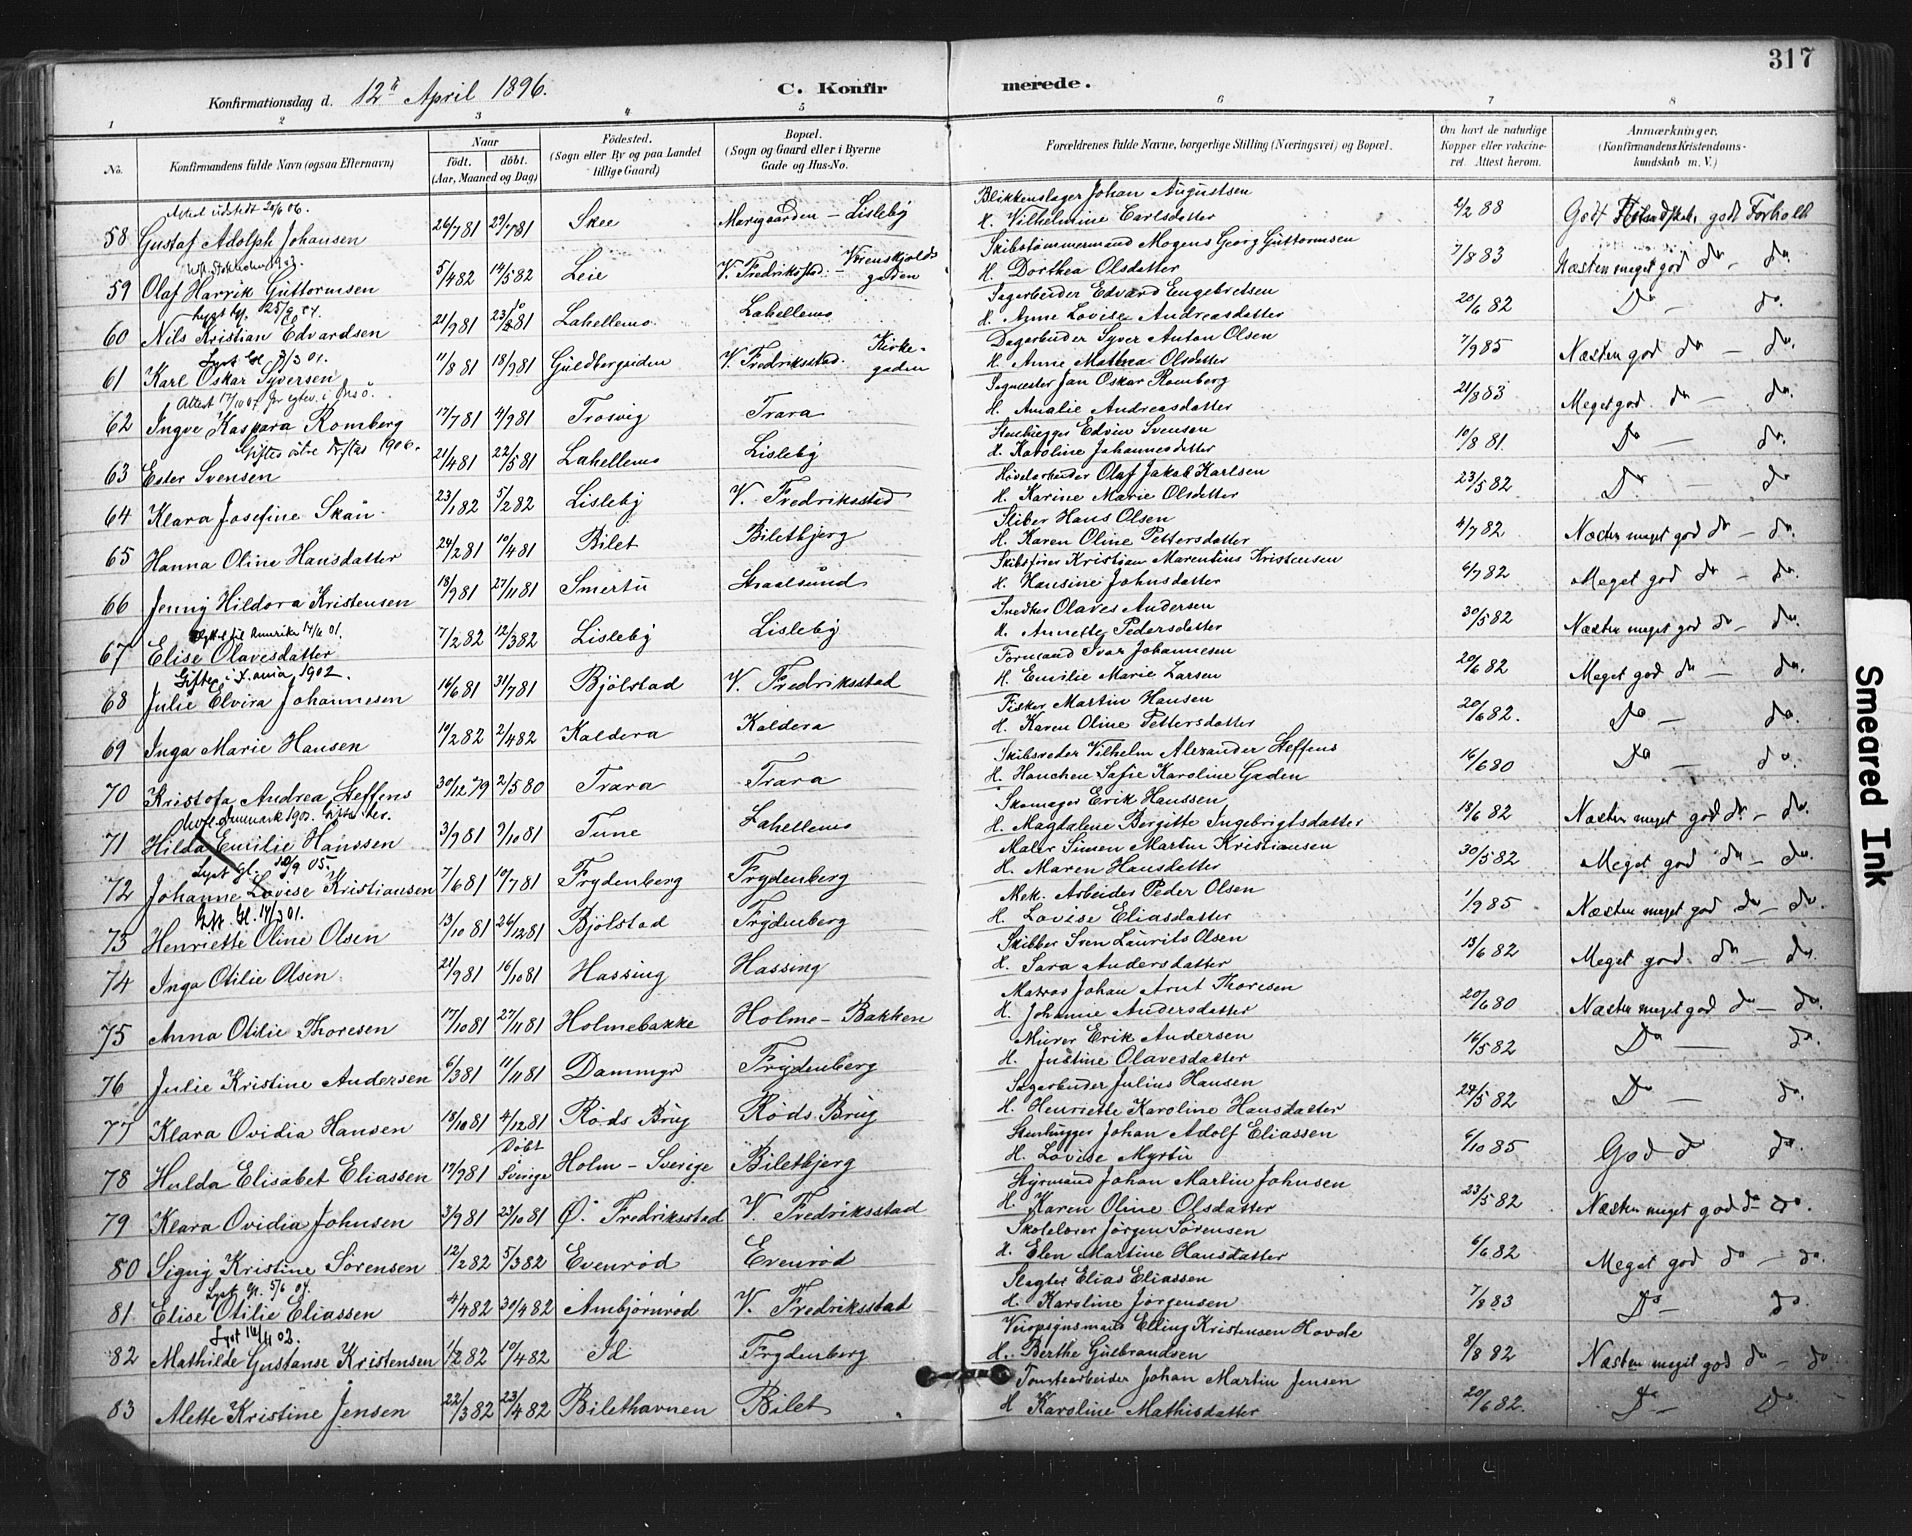 317
Konfirmationsdag d. 12te April 1896. C. Konfirmerede.
1 2 3 4 5 6 7 8
No. Konfirmandens fulde Navn (ogsaa Efternavn) Naar født. døbt. (Aar, Maaned og Dag) Fødested. (Sogn eller By og paa Landet tillige Gaard) Bopæl. (Sogn og Gaard eller i Byerne Gade og Hus-No. Forældrenes fulde Navne, borgerlige Stilling (Næringsvei) og Bopæl. Om havt de naturlige Kopper eller vakcineret. Attest herom. Anmærkninger. (Konfirmandens Kristendomskundskab m. V.)
Attest udstedt 20/6 06.
58 Gustaf Adolph Johansen 26/7 81 29/7 81 Skee Mariegaarden – Lisleby Blikkenslager Johan Augustsen H. Vilhelmine Carlsdatter 2/2 88 Godt godt Forhold
59 Olaf Harrik Guttormsen 5/4 82 14/5 82 Leie V. Fredriksstad – Werenskjolds gaden Skibstømmermand Mogens Georg Guttormsen H. Dorthea Olsdatter 7/8 83 Næsten meget god do – do.
60 Nils Kristian Edvardsen 21/9 81 23/10 81 Lahellemo Lahellemo Sagarbeider Edvard Engebretsen H. Anne Lovise Andreasdatter 20/6 82 Do do.
Lyst Gl. 7/3 01.
61 Karl Oskar Syversen 11/8 81 18/9 81 Guldbergsiden V. Fredriksstad. Kirkegaden Dagarbeider Syver Anton Olsen H. Anne Mathea Olsdatter 7/9 85 Næsten god do – do.
Attest 17/10 07 for egtev. i Onsö.
62 Ingve Kaspara Romberg 17/7 81 4/9 81 Trosvig Trara Sagmester Jan Oskar Romberg H. Amalie Andreasdatter 21/8 83 Meget god do – do.
Giftes östre Fstad 1906.
63 Ester Svensen 21/4 81 22/5 81 Lahellemo Lisleby Stenhugger Edvin Svenson H. Karoline Johannesdatter 10/8 81. Do – do.
64 Klara Josefine Skån 23/1 82 5/2 82 Lisleby V. Fredriksstad Høvelarbeider Olaf Jakob Karlsen H. Karine Marie Olsdatter 23/5 82 Do – do
65 Hanna Oline Hansdatter 24/2 81 10/4 81 Bilet Biletbjerg Sliber Hans Olsen H. Karen Oline Pettersdatter 4/7 82 Næsten meget god do – do.
66 Jenny Hildora Kristensen 18/9 81 27/11 81 Smertu Straalsund Skibsfører Kristian Marentius Kristensen H. Hansine Johnsdatter 6/7 82 Meget god do – do.
Flyttet til Amerika 14/6 01.
67 Elise Olavesdatter 7/2 82 12/3 82 Lisleby Lisleby Snedker Olaves Andersen H. Annette Pedersdatter 30/5 82 Næsten meget god do – do.
Giftes i X.ania 1902.
68 Julie Elvira Johannesen 14/6 81 31/7 81 Bjölstad V. Fredriksstad Formand Ivar Johannesen H. Emilie Marie Larsen 20/6 82 Meget god do – do.
69 Inga Marie Hansen 10/2 82 2/4 82 Kaldera Kaldera Fisker Martin Hansen H. Karen Oline Pettersdatter 20/6 82. Do – do.
70 Kristofa Andrea Steffens 30/12 79 2/5 80 Trara Trara Skibsreder Vilhelm Alexander Steffens H. Hanchen Safie Karoline Gaden 16/6 80 Do do.
71 Hilda Emilie Hanssen 3/9 81 9/10 81 Tune Lahellemo Skomager Erik Hanssen H. Magdalene Bergitte Ingebrigtsdatter 18/6 82 Næsten meget god do – do.
Lyst Gl. 10/9 05.
72 Johanne Lovise Kristiansen 7/6 81 10/7 81 Frydenberg Frydenberg Maler Simen Martin Kristiansen H. Maren Hansdatter 30/5 82 Meget god do – do.
Lyst Gl. 14/3 01.
73 Henriette Oline Olsen 13/10 81 26/12 81 Bjölstad Frydenberg Mek. Arbeider Peder Olsen H. Lovise Eliasdatter 1/9 85 Næsten meget god do – do.
74 Inga Otilie Olsen 21/9 81 16/10 81 Hassing Hassing Skibber Sven Laurits Olsen H. Sara Andersdatter 13/6 82 Meget god. do – do.
75 Anna Otilie Thoresen 17/10 81 27/11 81 Holmebakke Holme-Bakken Matros Johan Arnt Thoresen H. Johanne Andersdatter 20/6 80 Næsten meget god do – do.
76 Julie Kristine Andersen 6/3 81 11/11 81 Dammyr Frydenberg Murer Erik Andersen H. Justine Olavesdatter 16/5 82 Do – do.
77 Klara Ovidia Hansen 18/10 81 4/12 81 Røds Brug Røds Brug Sagarbeider Julius Hansen H. Henriette Karoline Hansdatter 24/5 82 Do – do.
78 Hulda Elisabet Eliassen 17/9 81 Döbt Sverige Holm – Sverige Biletbjerg Stenhugger Johan Adolf Eliassen H. Lovise Myrtu 6/10 85 God do do.
79 Klara Ovidia Johnsen 3/9 81 23/10 81 Ø. Fredriksstad V. Fredriksstad Styrmand Johan Martin Johnsen H. Karen Oline Olsdatter 23/5 82 Næsten meget god do do.
80 Signy Kristine Sörensen 12/2 82 5/3 82 Evenrød Evenrød Skolelærer Jørgen Sørensen H. Elen Martine Hansdatter 6/6 82 Meget god do – do.
Lyst Gl. 5/6 04.
81 Elise Otilie Eliassen 4/4 82 30/4 82 Ambjørnrød V. Fredriksstad Slagter Elias Eliassen H. Karoline Jørgensen 7/8 83 Do – do.
Lyst 16/11 02.
82 Mathilde Gustanse Kristensen 1/2 82 10/4 82 Id Frydenberg Elling Kristensen Hovde H. Berthe Gulbrandsen 8/8 82 Næsten meget god do – do
83 Alette Kristine Jensen 22/3 82 23/4 82 Bilethavnen Bilet Tomtearbeider Johan Martin Jensen H Karoline Mathisdatter 20/6 82. Do – Do.
Smeared Ink